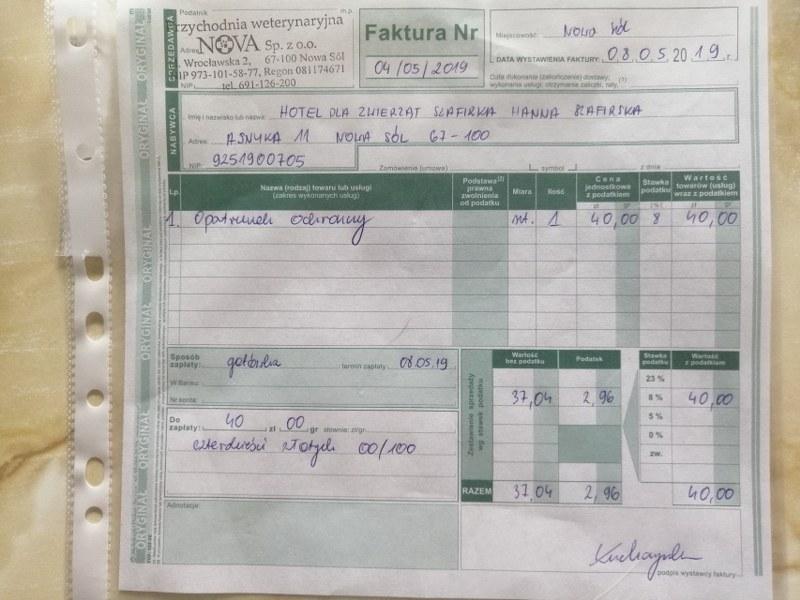 Podatnik
m.p.
SPRZEDAWCA
zychodnia weterynaryjna
NOVA Sp. z o.o.
Adres
Wrocławska 2, 67-100 Nowa Sól
IP 973-101-58-77, Regon 081174671
NIP
tel. 691-126-200
Faktura Nr
04/05/2019
Miejscowość: Nowa Sól
DATA WYSTAWIENIA FAKTURY: 08.05.2019 r.
Data dokonania (zakończenia) dostawy,
wykonania usługi, otrzymania zaliczki, raty
NABYWCA
Imię i nazwisko lub nazwa: HOTEL DLA ZWIERZĄT SZAFIRKA HANNA SZAFIRSKA
Adres: ASNYKA 11 NOWA SÓL 67-100
NIP: 9251900705
Zamówienie (umowa) symbol z dnia
Lp. Nazwa (rodzaj) towaru lub usługi (zakres wykonanych usług) Podstawa(2) prawna zwolnienia od podatku Miara Ilość Cena jednostkowa z podatkiem Stawka podatku Wartość towarów (usług) wraz z podatkiem
zł gr [%] zł gr
1. Opatrunek ochronny 1 40,00 8 40,00
Sposób zapłaty: gotówka termin zapłaty 08.05.19
W Banku
Nr konta
Do zapłaty: 40 zł 00 gr słownie: zł/gr
czterdzieści złotych 00/100
Adnotacje:
Zestawienie sprzedaży wg stawek podatku
Wartość bez podatku Podatek Stawka podatku Wartość z podatkiem
23 %
37,04 2,96 8 % 40,00
5 %
0 %
zw.
RAZEM 37,04 2,96 40,00
podpis wystawcy faktury
ORYGINAŁ ORYGINAŁ ORYGINAŁ ORYGINAŁ ORYGINAŁ ORYGINAŁ